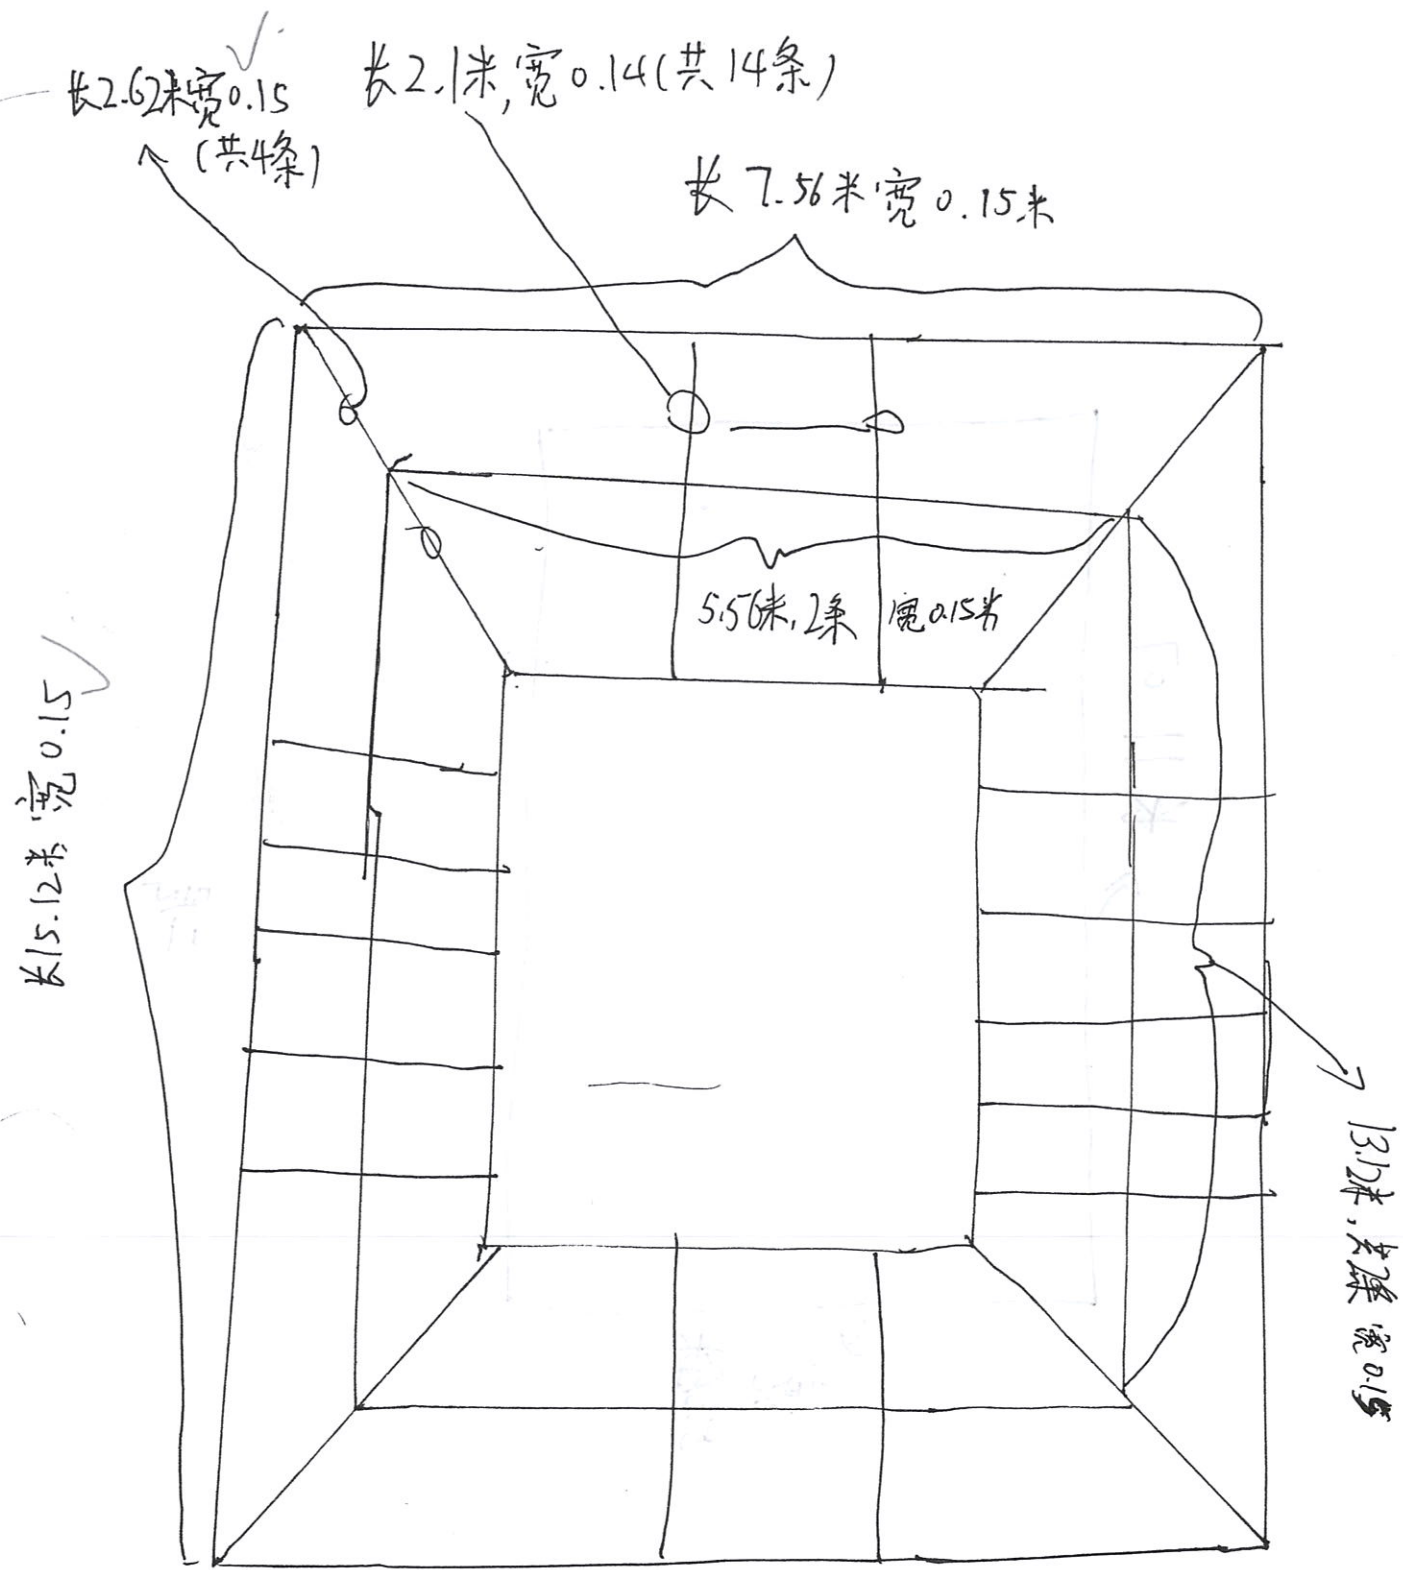 长2.62米宽0.15
(共4条)
长2.1米,宽0.14(共14条)
长7.56米宽0.15米
5.56米,2条 宽0.15米
长15.12米宽0.15
13.12米,共2条 宽0.15